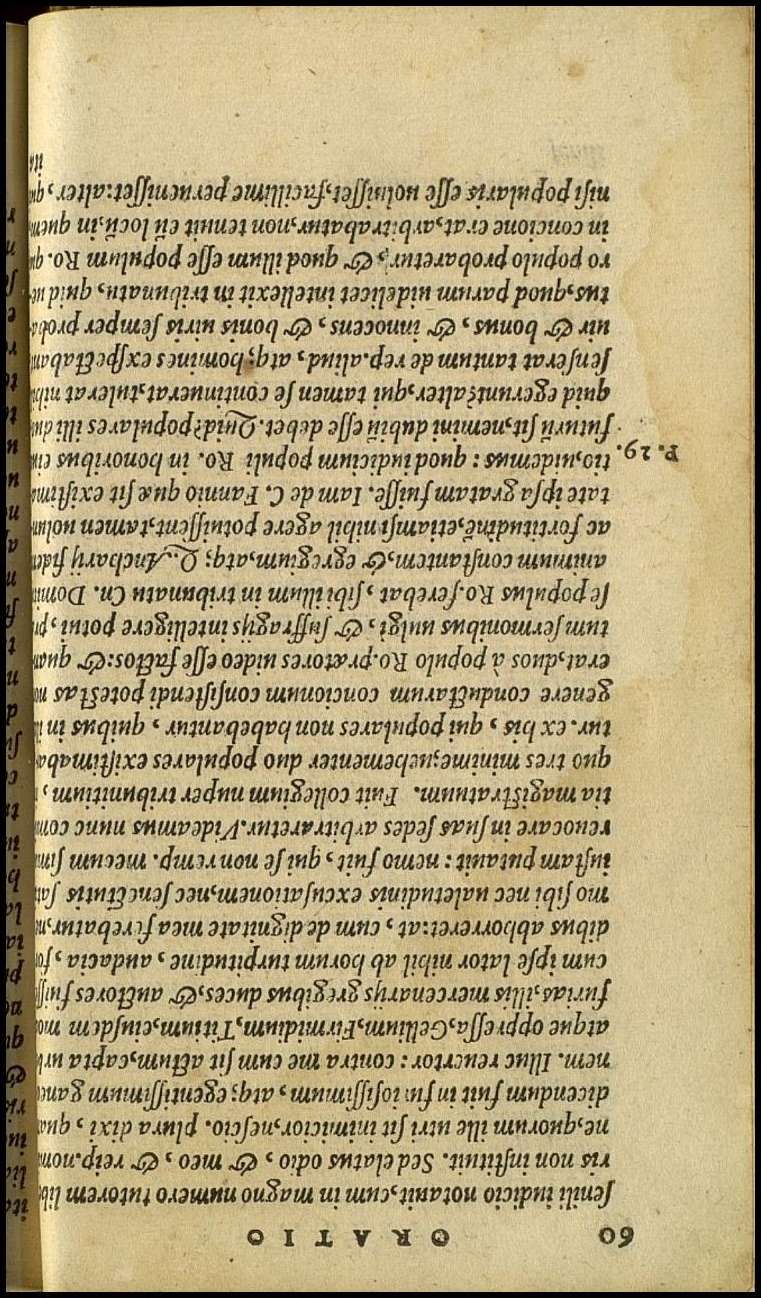 60 ORATIO
senili iudicio notauit, cum in magno numero tutorem libe
ris non instituit. Sed elatus odio, & meo, & reip. nom
ne, quorum ille utri sit inimicior, nescio. plura dixi, qua
dicendum fuit in furiosissimum, atq; egentissimum gane
nem. Illuc reuertor: contra me cum sit actum, capta urb
atque oppressa, Gellium, Firmidium, Titium, eiusdem mo
furias, illis mercenarijs gregibus duces, & auctores fuiss
cum ipse lator nihil ab horum turpitudine, audacia, so
dibus abhorreret: at, cum de dignitate mea ferebatur, ne
mo sibi nec ualetudinis excusationem, nec senectutis sat
iustam putauit: nemo fuit, qui se non remp. mecum sim
reuocare in suas sedes arbitraretur. Videamus nunc com
tia magistratuum. Fuit collegium nuper tribunitium,
quo tres minime, uehementer duo populares existimaba
tur. ex his, qui populares non habebantur, quibus in il
genere conductarum concionum consistendi potestas no
erat, duos à populo Ro. prætores uideo esse factos: & quan
tum sermonibus uulgi, & suffragijs intelligere potui, præ
se populus Ro. ferebat, sibi illum in tribunatu Cn. Domit
animum constantem, & egregium, atq; Q. Ancharij fidem
ac fortitudinē, etiamsi nihil agere potuissent, tamen uolun
tate ipsa gratam fuisse. Iam de C. Fannio quæ sit existima
tio, uidemus: quod iudicium populi Ro. in honoribus eius
P. 29.
futurū sit, nemini dubiū esse debet. Quid? populares illi duo
quid egerunt? alter, qui tamen se continuerat, tulerat nihil
senserat tantum de rep. aliud, atq; homines exspectabant
uir & bonus, & innocens, & bonis uiris semper proba
tus, quod parum uidelicet intellexit in tribunatu, quid ue
ro populo probaretur, & quod illum esse populum Ro. qui
in concione erat, arbitrabatur, non tenuit eū locū, in quem
nisi popularis esse uoluisset, facillime peruenisset: alter, qui
ita